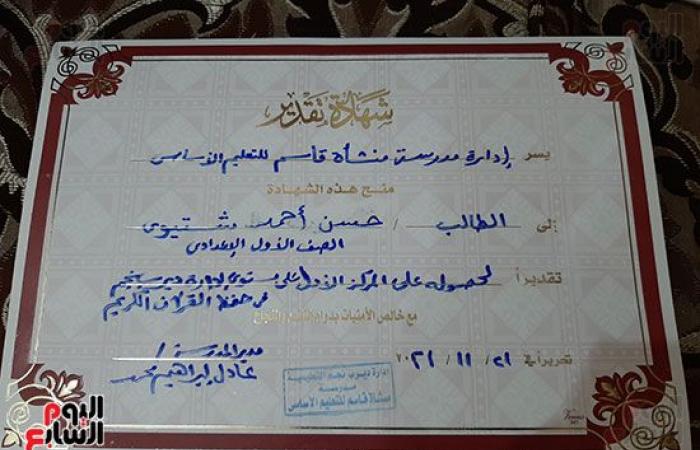 شهادة تقدير
يسر إدارة مدرسة منشأة قاسم للتعليم الأساسى
منح هذه الشهادة
إلى الطالب / حسن أحمد شتيوى
الصف الأول الإعدادى
تقديراً لحصوله على المركز الأول على مستوى إدارة ديرب نجم
فى حفظ القرآن الكريم
مع خالص الأمنيات بدوام التقدم والنجاح
تحريراً في ٢١ / ١١ / ٢٠٢١
مدير المدرسة /
عادل إبراهيم محمد
إدارة ديرب نجم التعليمية
مدرسة
منشأة قاسم للتعليم الأساسى
اليوم السابع